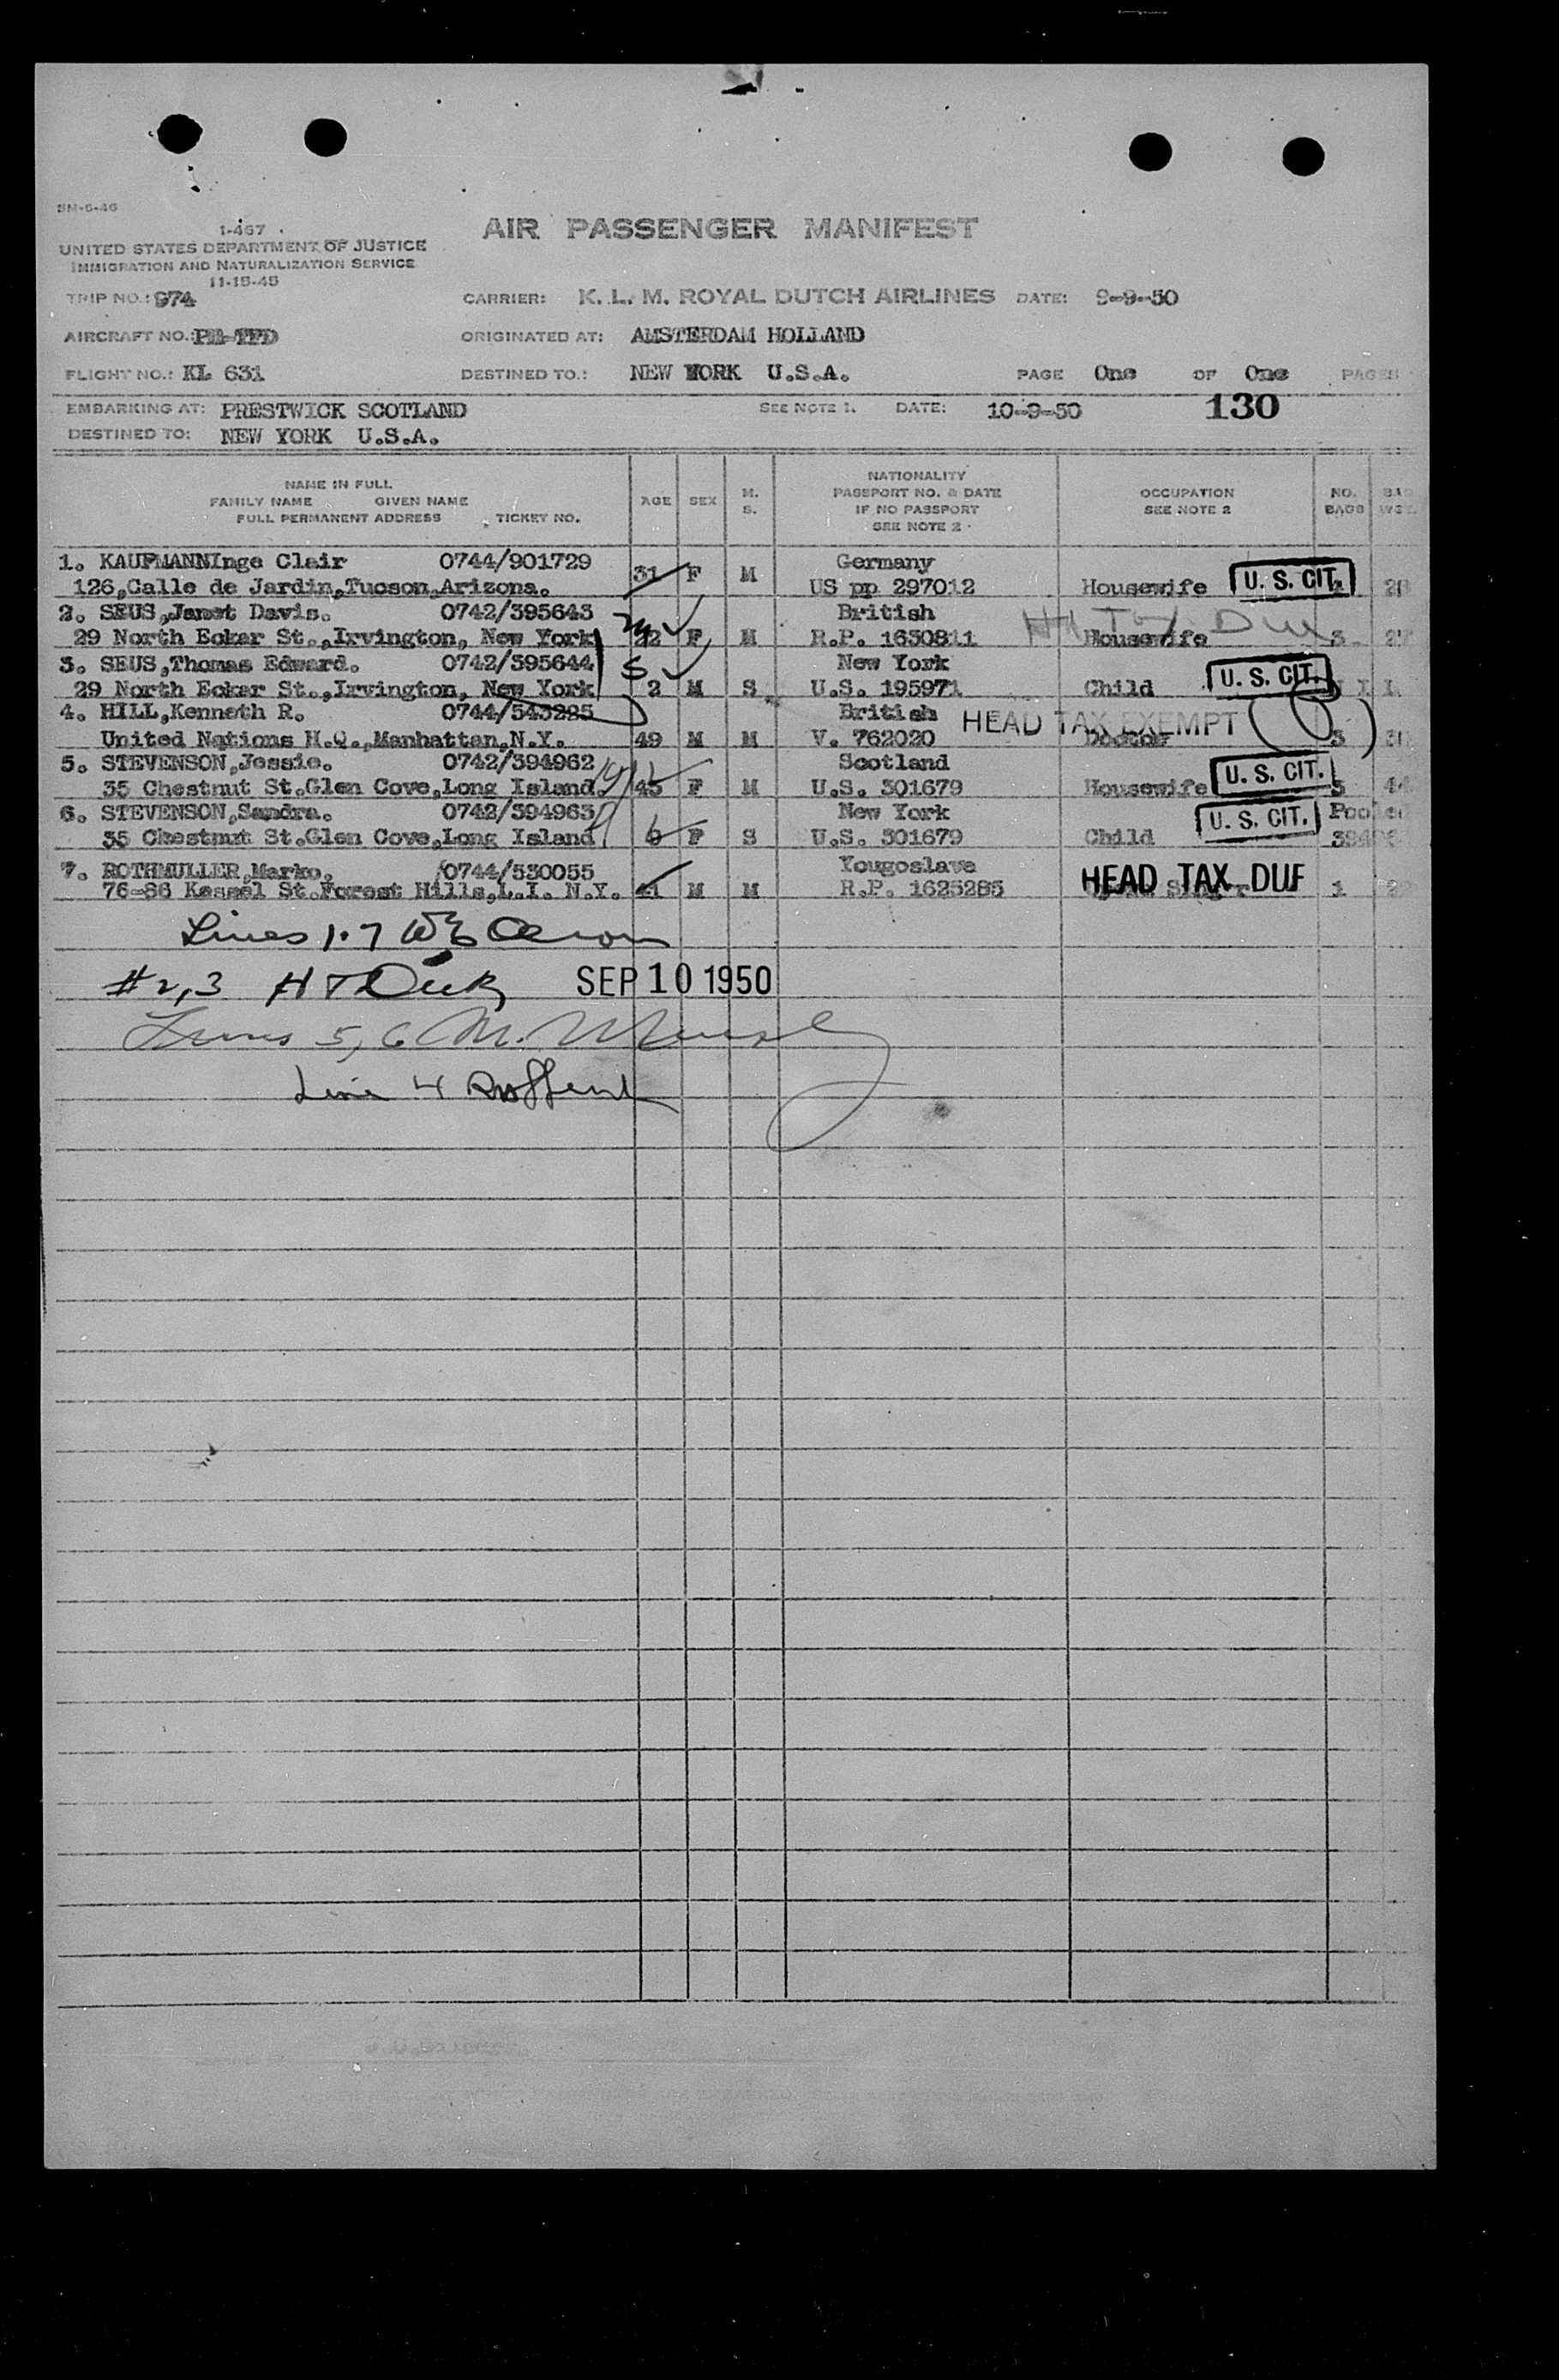 SM-6-46
1-467
UNITED STATES DEPARTMENT OF JUSTICE
IMMIGRATION AND NATURALIZATION SERVICE
11-15-45
AIR PASSENGER MANIFEST
TRIP NO.: 974 CARRIER: K. L. M. ROYAL DUTCH AIRLINES DATE: 9-9-50
AIRCRAFT NO.: ORIGINATED AT: AMSTERDAM HOLLAND
FLIGHT NO.: KL 631 DESTINED TO.: NEW YORK U.S.A. PAGE One OF One PAGES
EMBARKING AT: PRESTWICK SCOTLAND SEE NOTE 1. DATE: 10-9-50 130
DESTINED TO: NEW YORK U.S.A.
NAME IN FULL
FAMILY NAME GIVEN NAME
FULL PERMANENT ADDRESS TICKET NO.
AGE SEX M. S.
NATIONALITY
PASSPORT NO. & DATE
IF NO PASSPORT
SEE NOTE 2
OCCUPATION
SEE NOTE 2
NO. BAGS
1. KAUFMANNInge Clair 0744/901729 Germany
126,Calle de Jardin,Tucson,Arizona. 31 F M US pp 297012 Housewife U. S. CIT.
2. SEUS,Janet Davis. 0742/395643 British
29 North Ecker St.,Irvington, New York 22 F M R.P. 1630811 Housewife 3 Hd Tax Due
3. SEUS,Thomas Edward. 0742/395644 5 New York
29 North Ecker St.,Irvington, New York 2 M S U.S. 195971 Child U. S. CIT.
4. HILL,Kenneth R. 0744/543285 British HEAD TAX EXEMPT
United Nations H.Q.,Manhattan,N.Y. 49 M M V. 762020 Doctor 3
5. STEVENSON,Jessie. 0742/394962 Scotland
35 Chestnut St.Glen Cove,Long Island. 45 F M U.S. 301679 Housewife U. S. CIT. 3 44
6. STEVENSON,Sandra. 0742/394963 New York
35 Chestnut St.Glen Cove,Long Island 6 F S U.S. 301679 Child U. S. CIT.
7. ROTHMULLER,Marko. 0744/530055 Yougoslave
76-86 Kessel St.Forest Hills,L.I. N.Y. 41 M M R.P. 1625285 HEAD TAX DUE 1
Lines 1.7
#2,3 SEP 10 1950
Lines 5,6 M.
Line 4